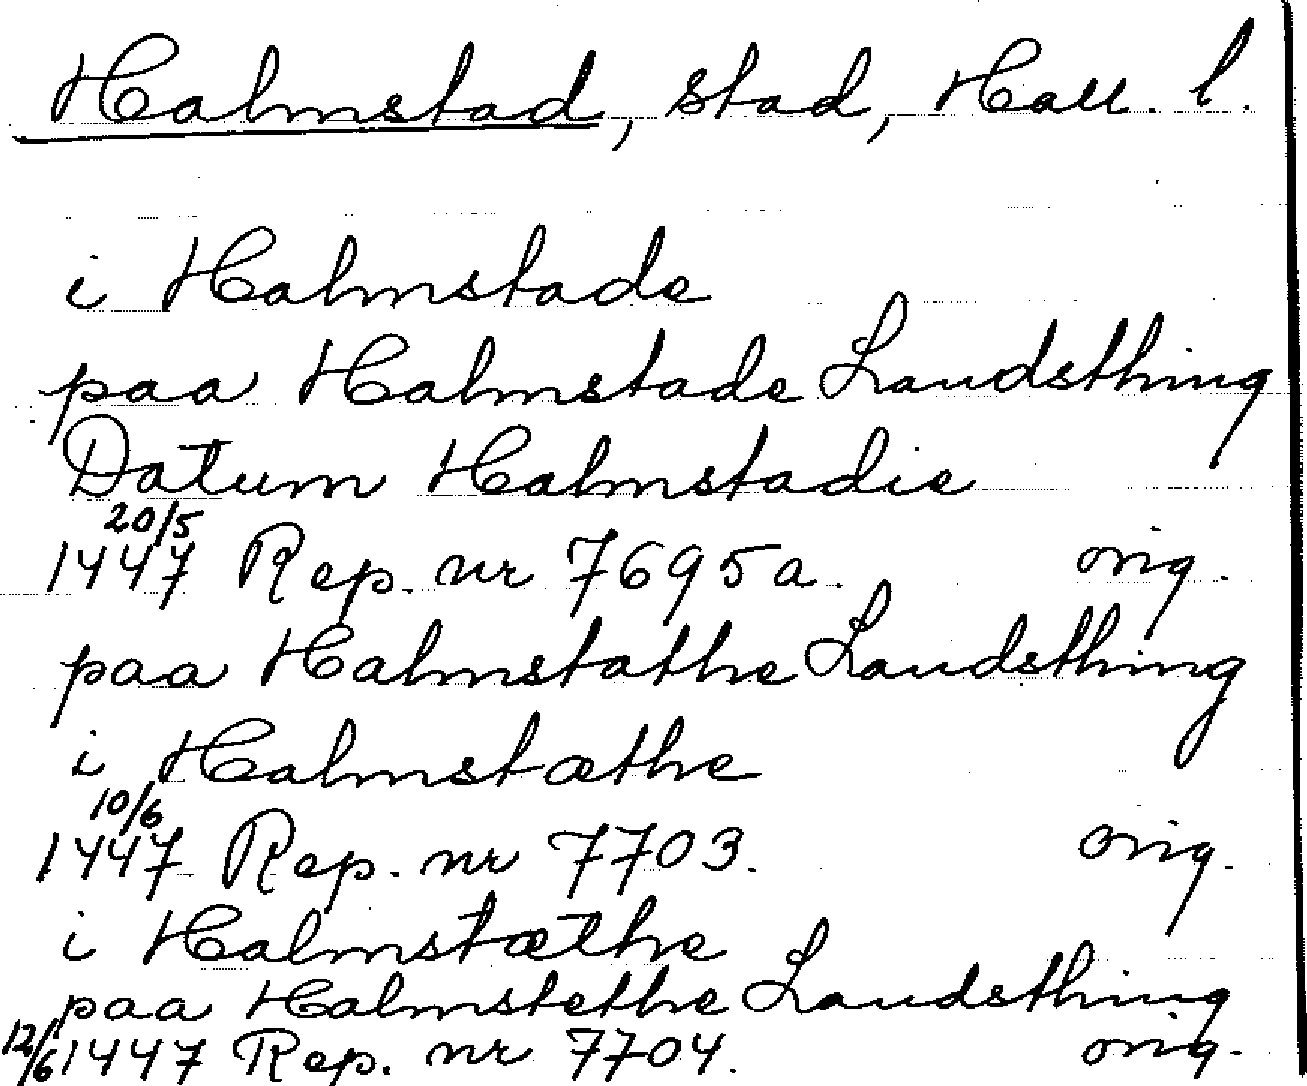 Halmstad, stad, Hall. l.
i Halmstade
paa Halmstade Landsthing
Datum Halmstadie
20/5
1447 Rep. nr 7695a. orig.
paa Halmstathe Landsthing
i Halmstæthe
10/6
1447 Rep. nr 7703. orig.
i Halmstæthe
paa Halmstethe Landsthing
12/6 1447 Rep. nr 7704. orig.